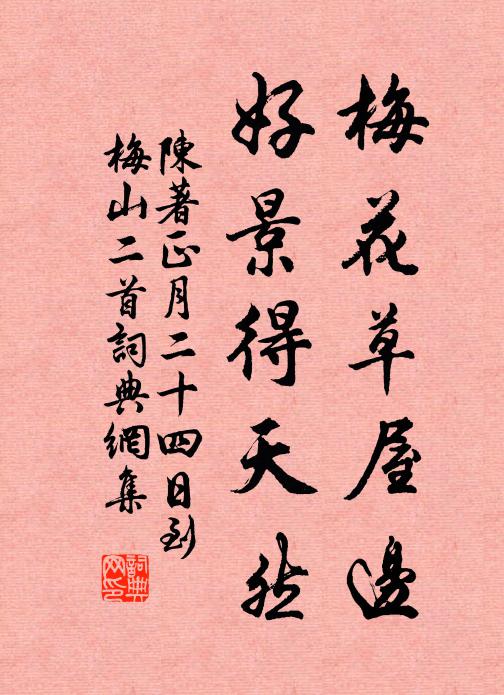 梅花草屋邊
好景得天然
陳著正月二十四日到
梅山二首詞典網集
詞典
网印